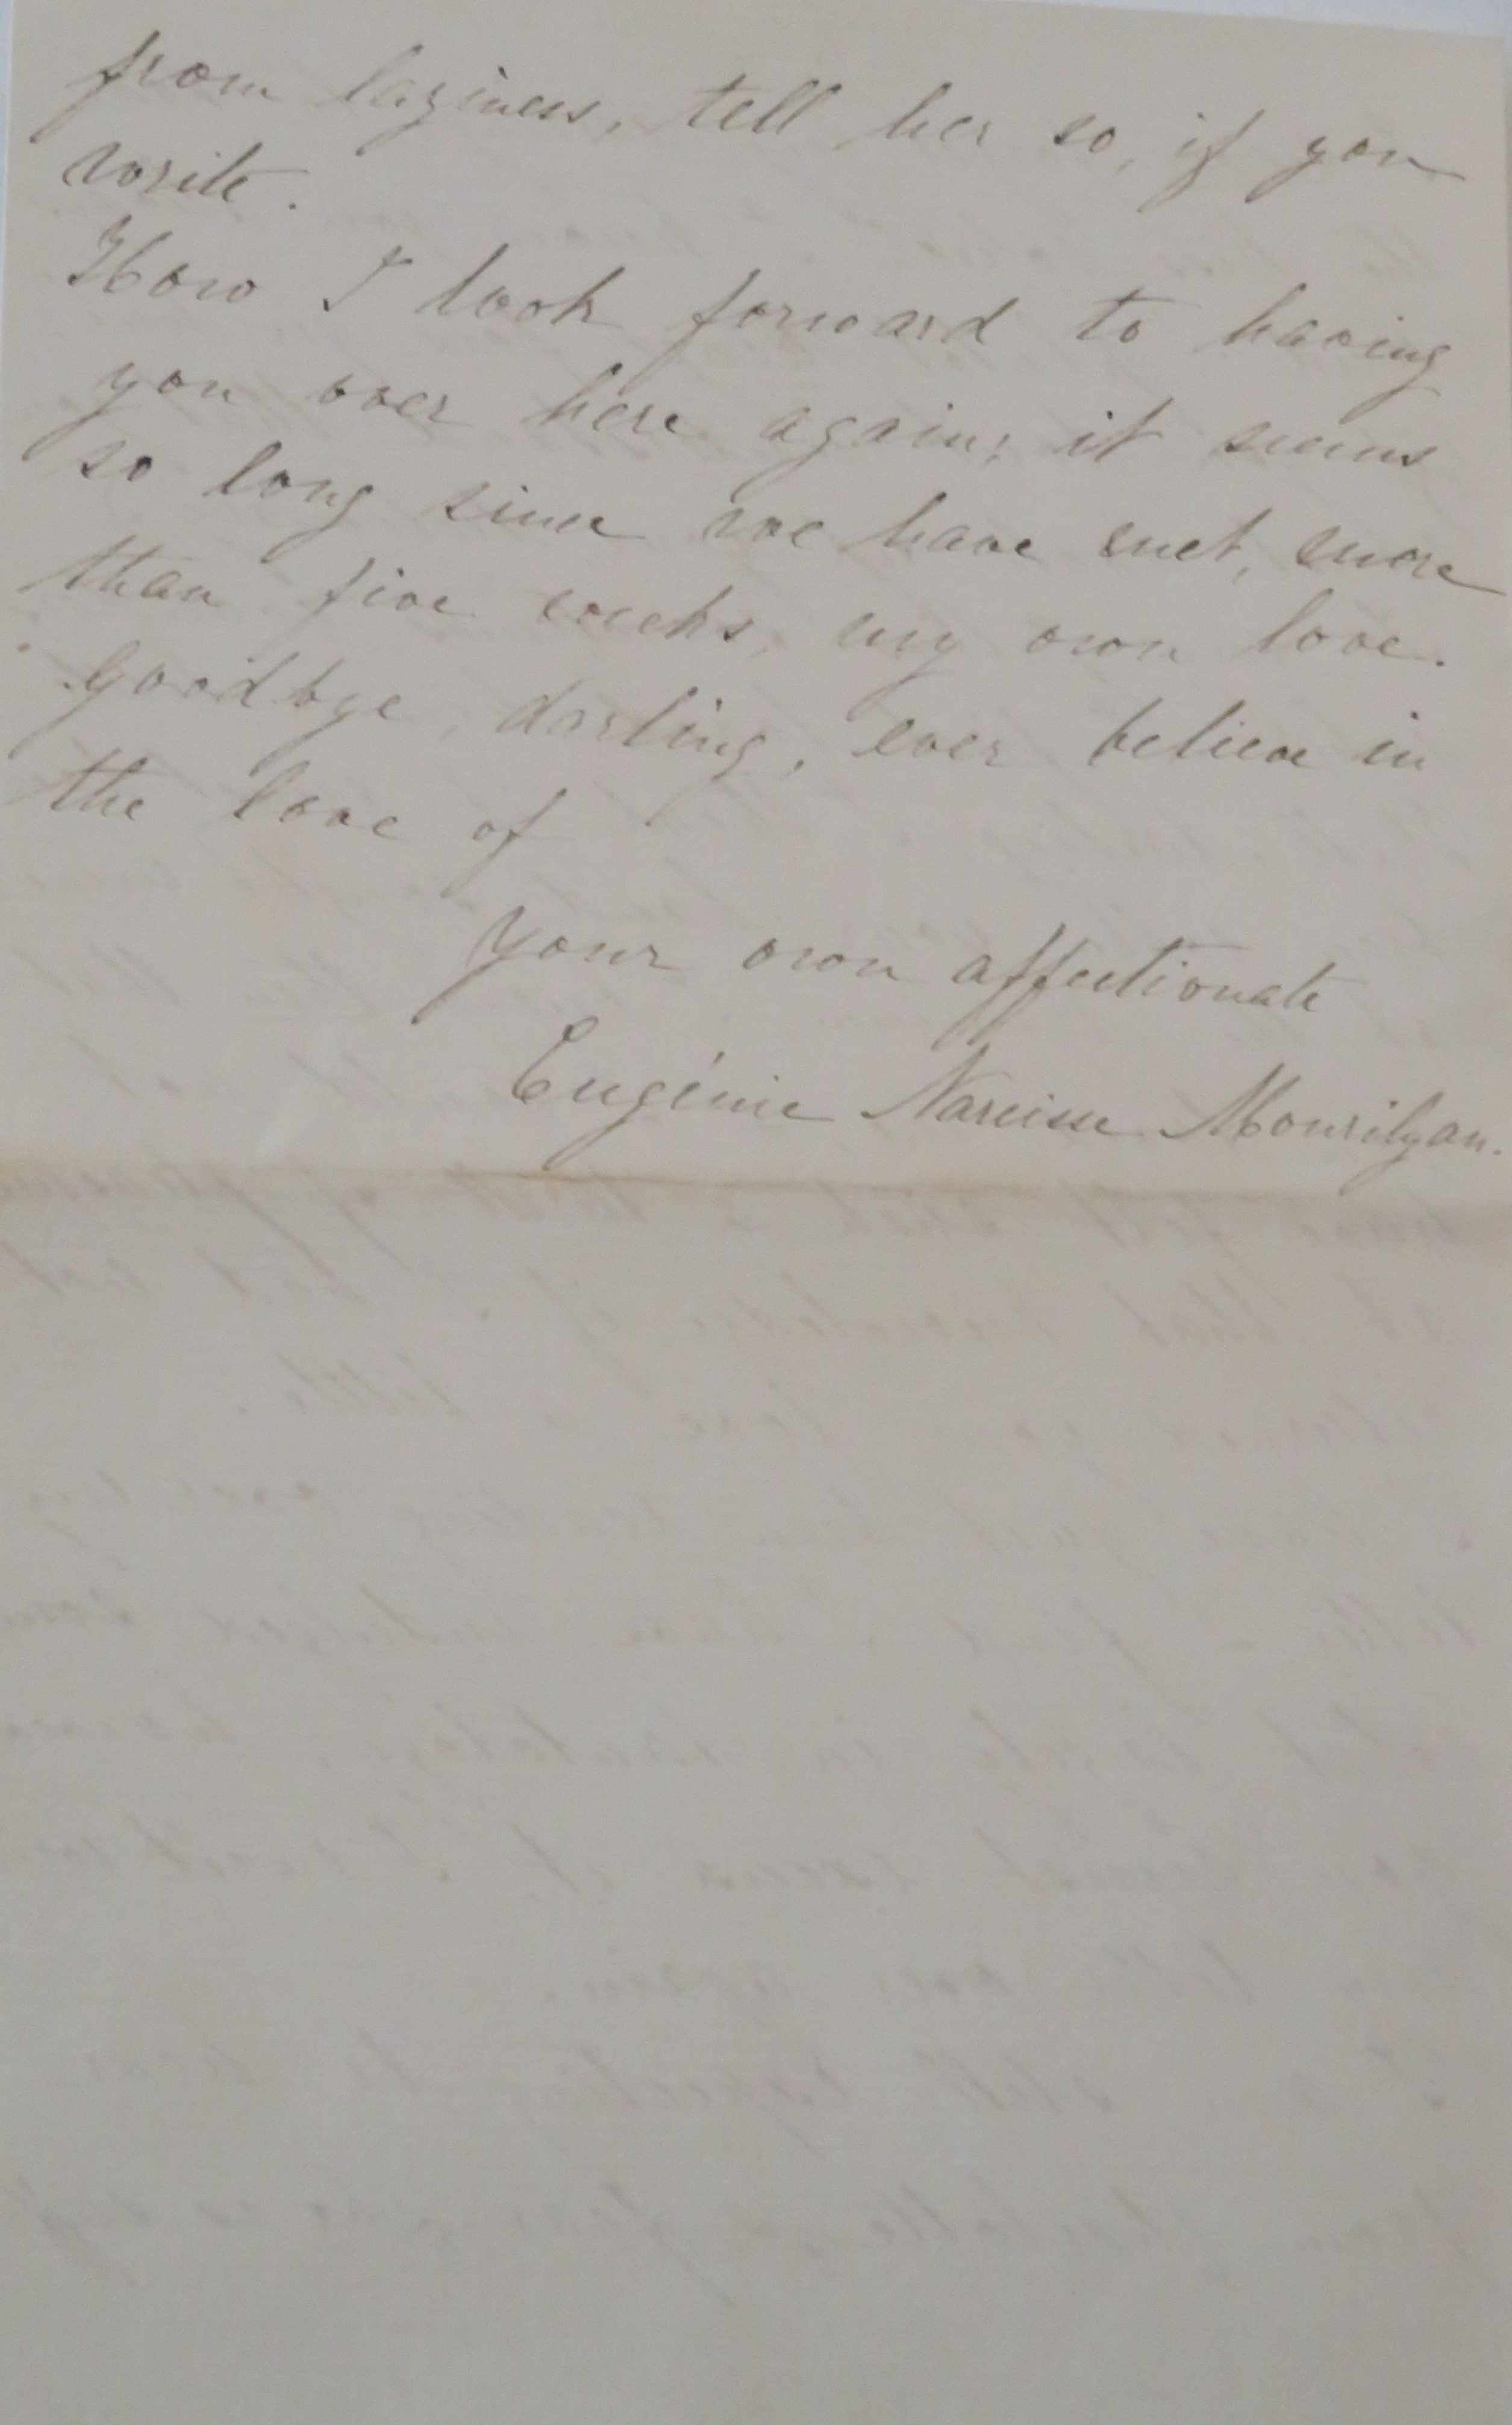 from laziness, tell her so, if you
write.
How I look forward to having
you over here again; it seems
so long since we have met, more
than five weeks, my own love.
Goodbye, darling, ever believe in
the love of
your own affectionate
Eugénie Narcisse Mourilyan.